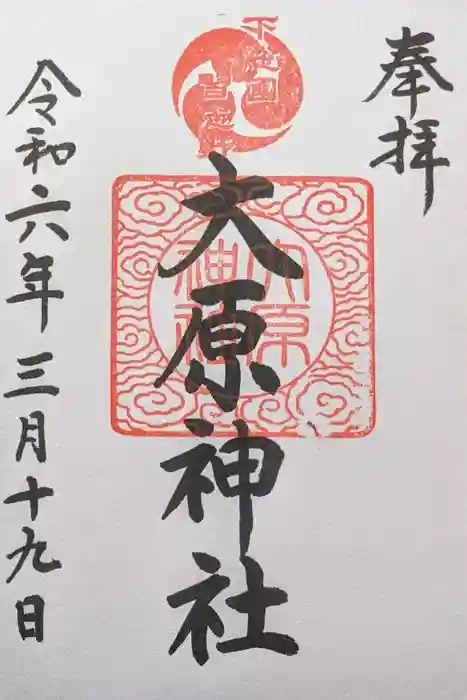 奉拝
下総國
大原神社
大原
神社
令和六年三月十九日